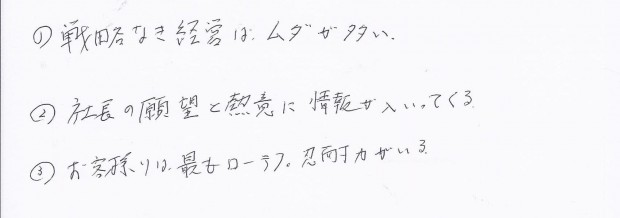 ① 戦略なき経営は、ムダが多い.
② 社長の願望と熱意に情報が入いってくる.
③ お客様りは最もローラフ。忍耐力がいる.